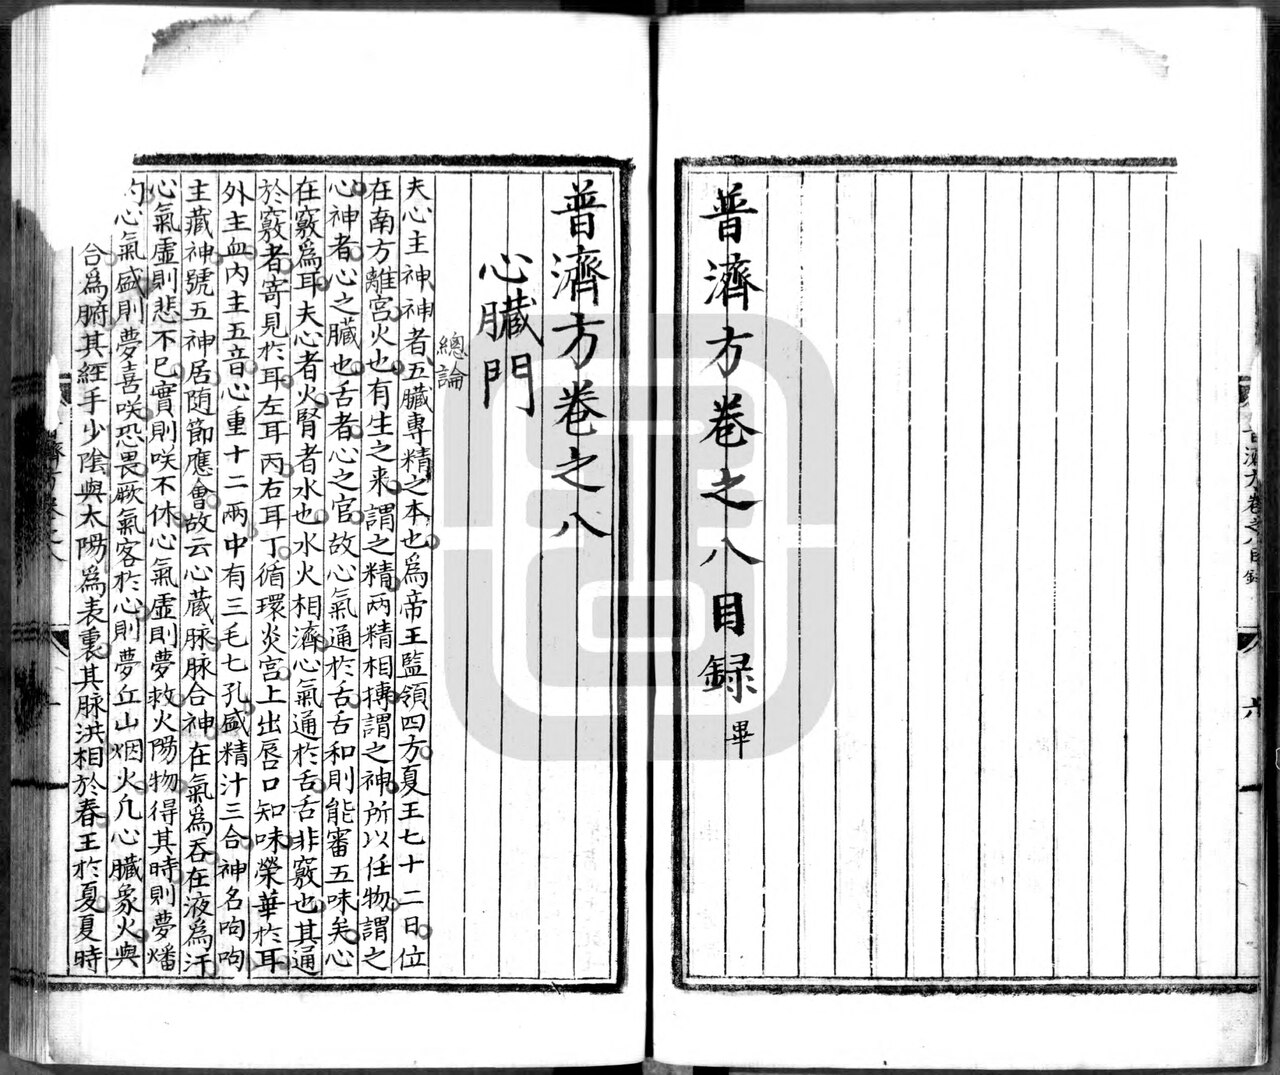 普濟方卷之八目録 畢
普濟方卷之八
心臟門
總論
夫心主神神者五臟專精之本也爲帝王監領四方夏王七十二日位
在南方離宮火也有生之来謂之精两精相搏謂之神所以任物謂之
心神者心之臟也舌者心之官故心氣通於舌舌和則能審五味矣心
在竅爲耳夫心者火腎者水也水火相濟心氣通於舌舌非竅也其通
於竅者寄見於耳左耳丙右耳丁循環炎宮上出唇口知味榮華於耳
外主血内主五音心重十二兩中有三毛七孔盛精汁三合神名呴呴
主藏神號五神居随節應會故云心蔵脉脉合神在氣爲吞在液爲汗
心氣虛則悲不已實則咲不休心氣虛則夢救火陽物得其時則夢燔
灼心氣盛則夢喜咲恐畏厥氣客於心則夢丘山烟火凢心臟象火與
合爲腑其經手少陰與太陽爲表裏其脉洪相於春王於夏夏時